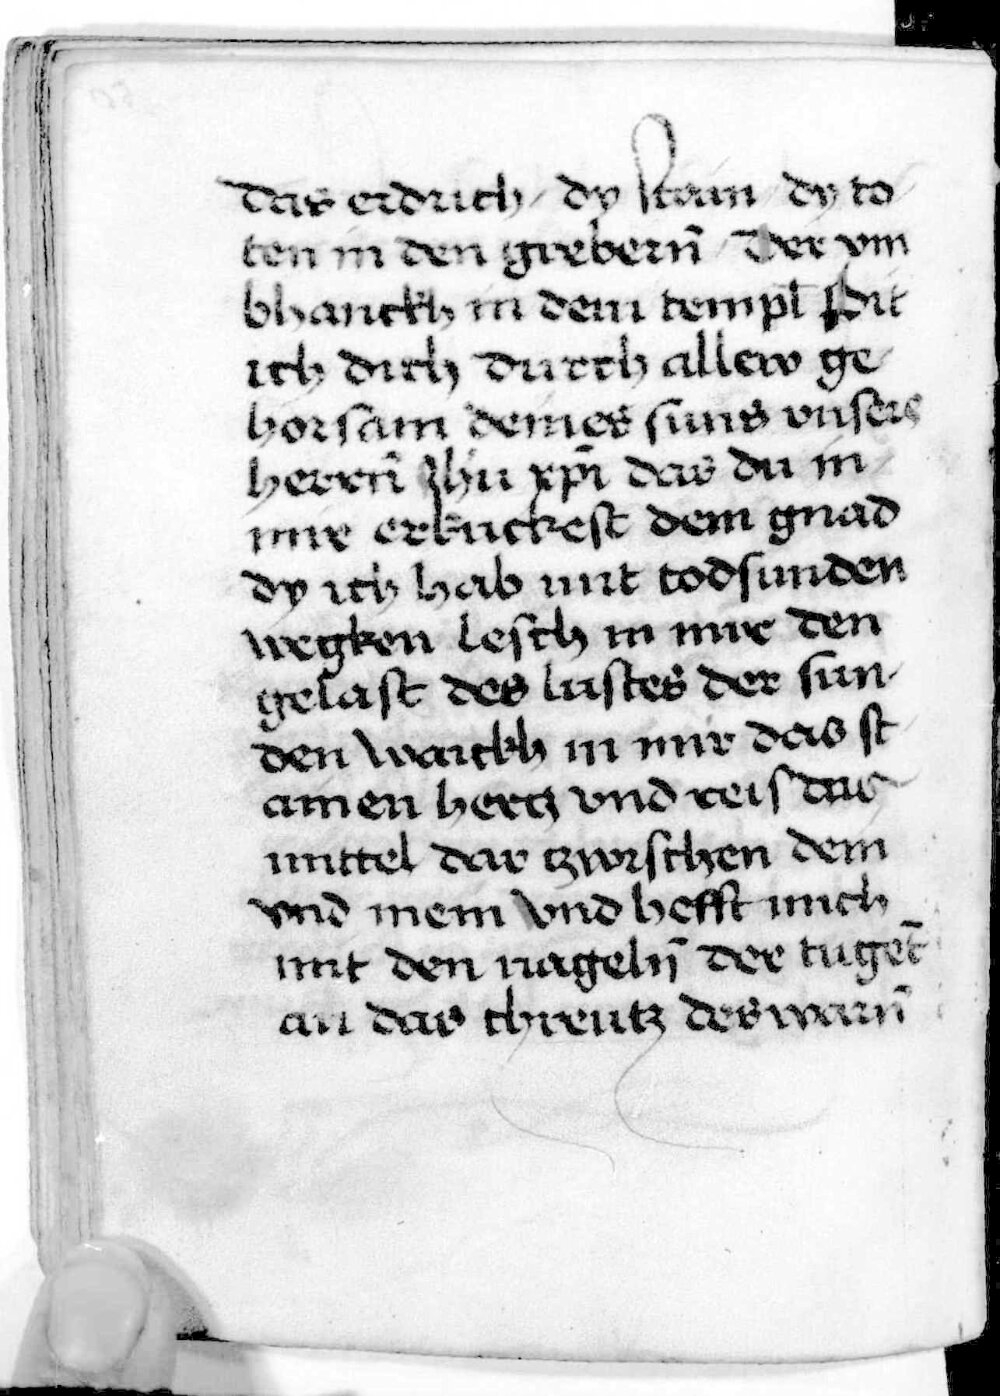 das erdrich / dy stain / dy to
ten in den grebern̄ / Der vm
bhanckh in dem templ̄ Pit
ich dich durch allew ge
horsam deines suns vnsers
herrn̄ Jhu xp̄i das du in
mir erkuckest dein gnad
dy ich hab mit todsunden
wegken lesch in mir den
gelast des lustes der sun-
den Waickh in mir das st
ainen hertz vnd reis das
mittel dar tzwischen dein
vnd mein Vnd hefft mich
mit den nageln̄ der tuget̄
an das chreutz des warn̄